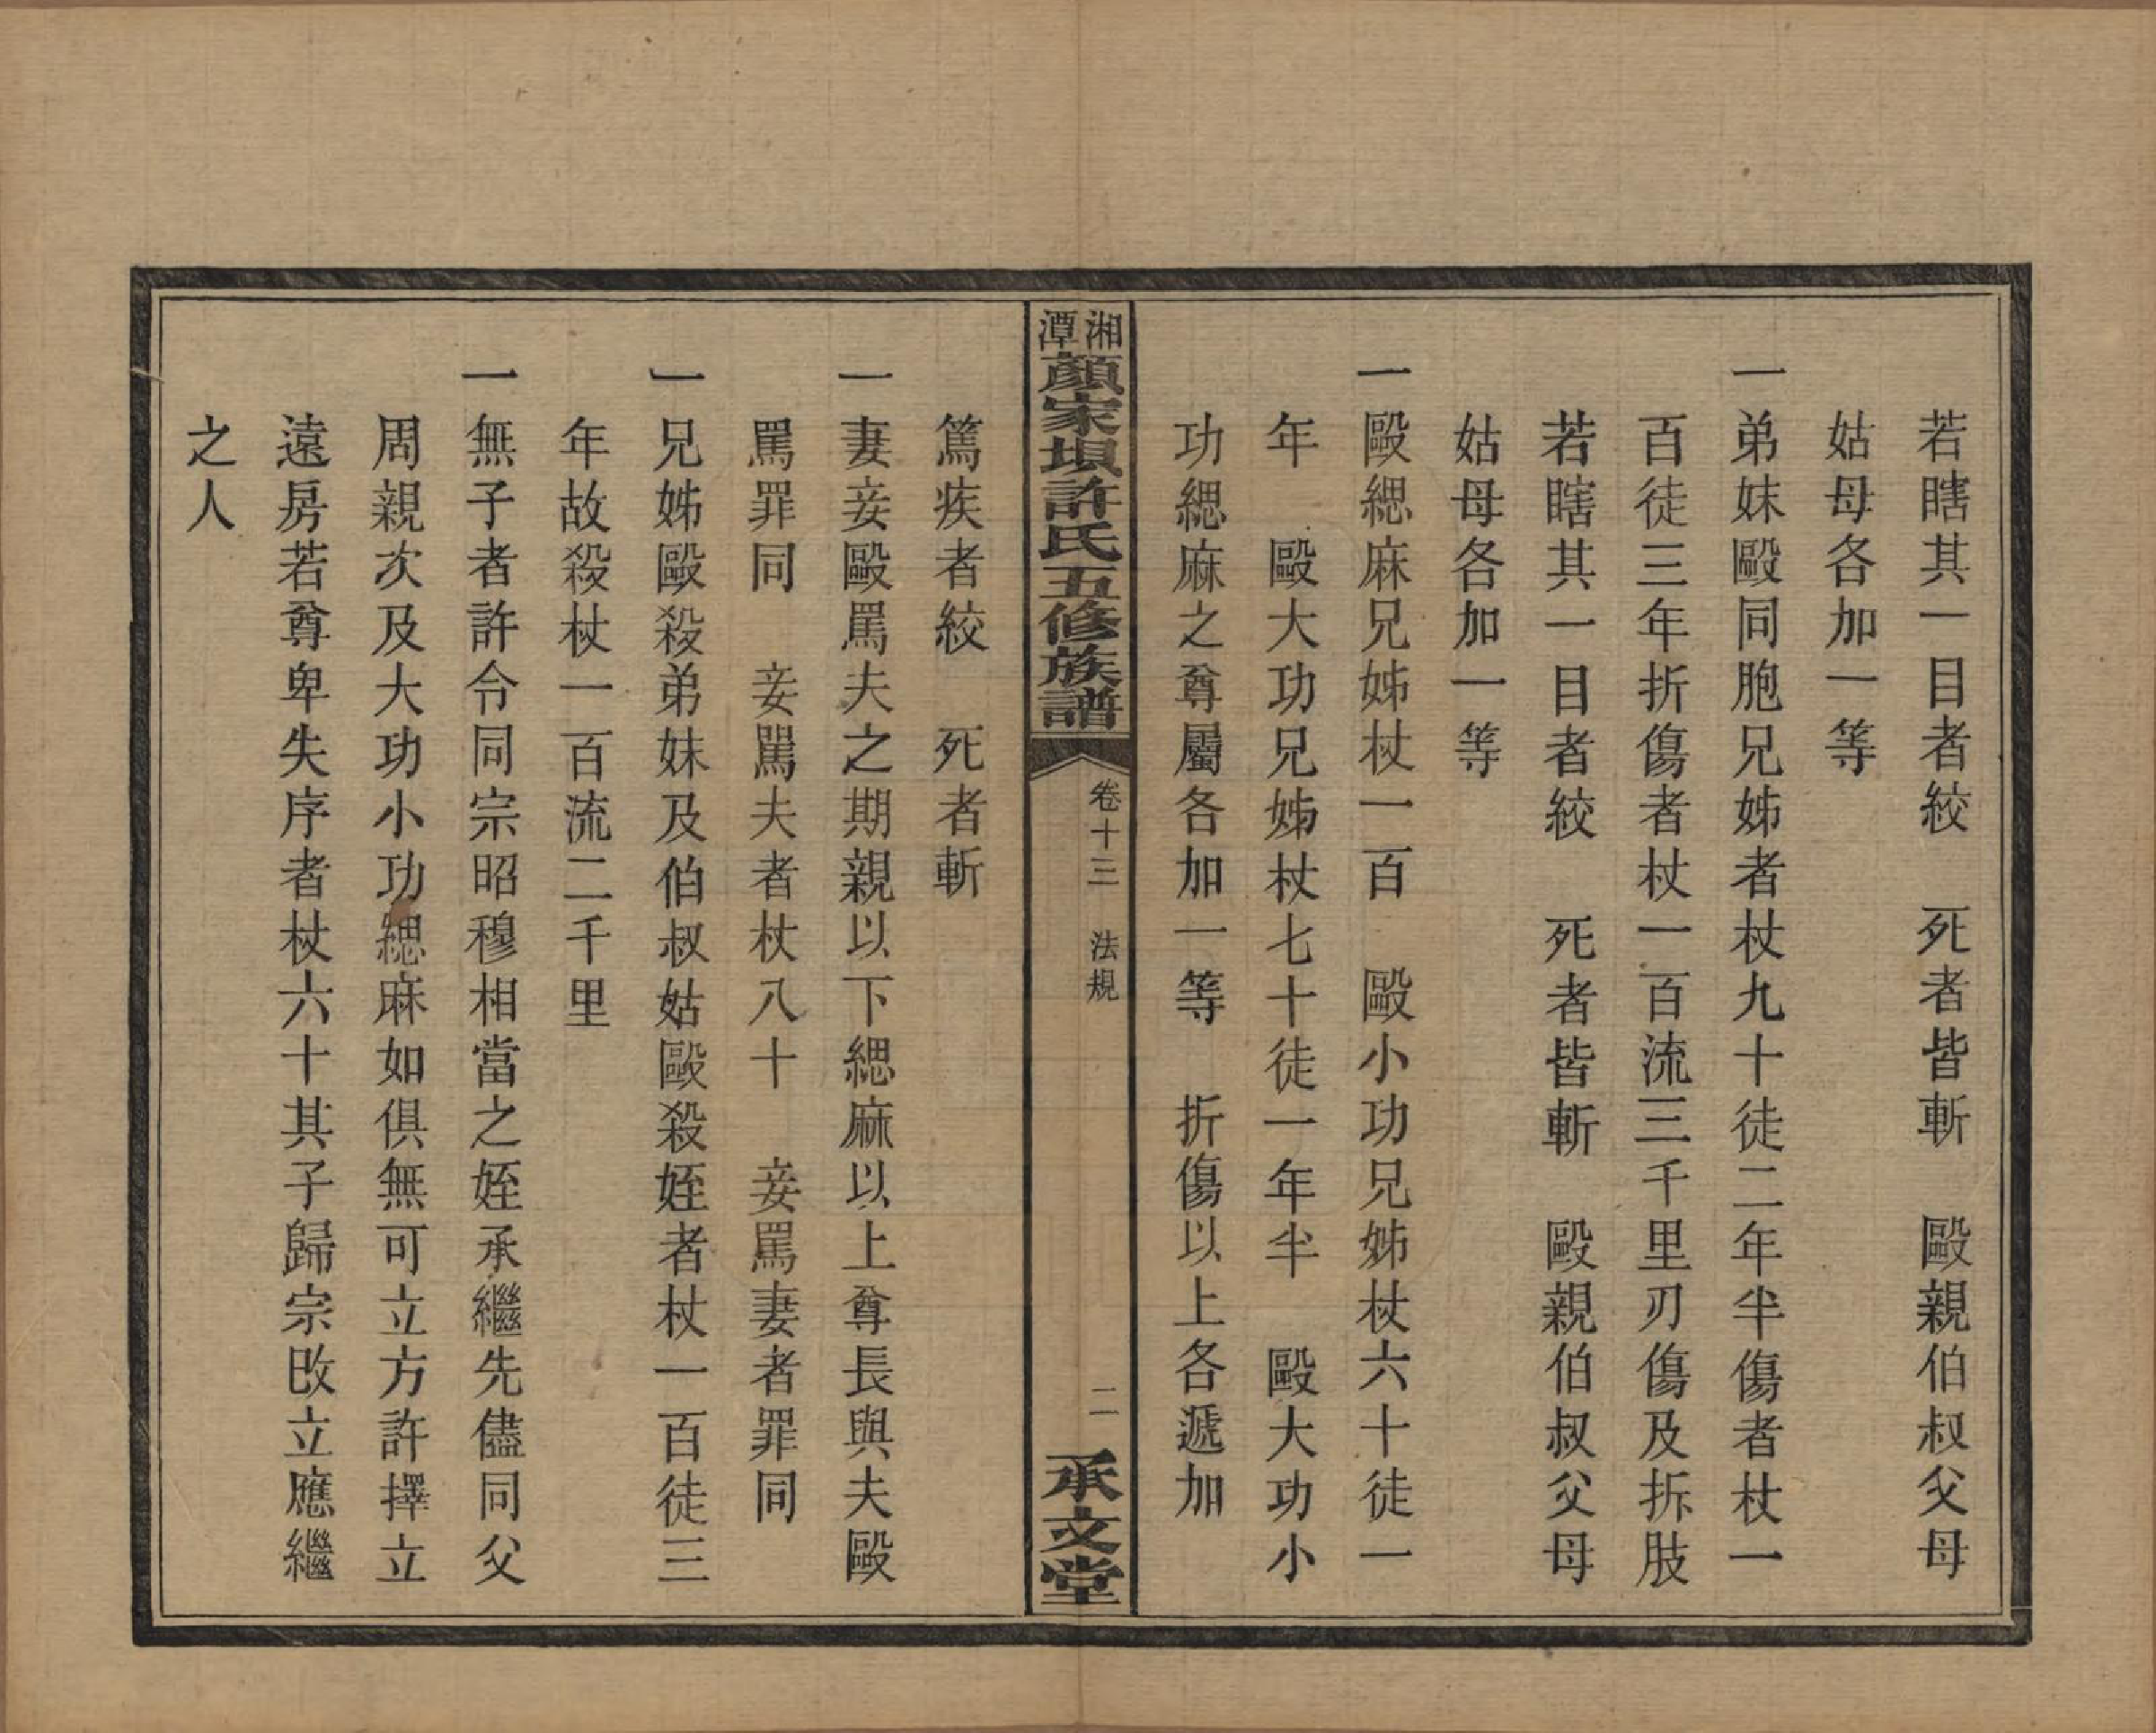 若瞎其一目者絞　死者皆斬　毆親伯叔父母
姑母各加一等
一弟妹毆同胞兄姊者杖九十徒二年半傷者杖一
百徒三年折傷者杖一百流三千里刃傷及拆肢
若瞎其一目者絞　死者皆斬　毆親伯叔父母
姑母各加一等
一毆緦麻兄姊杖一百　毆小功兄姊杖六十徒一
年　毆大功兄姊杖七十徒一年半　毆大功小
功緦麻之尊屬各加一等　折傷以上各遞加
湘潭顏家垻許氏五修族譜
卷十三　法規
二
承文堂
篤疾者絞　死者斬
一妻妾毆罵夫之期親以下緦麻以上尊長與夫毆
罵罪同　妾罵夫者杖八十　妾罵妻者罪同
一兄姊毆殺弟妹及伯叔姑毆殺姪者杖一百徒三
年故殺杖一百流二千里
一無子者許令同宗昭穆相當之姪承繼先儘同父
周親次及大功小功緦麻如俱無可立方許擇立
遠房若尊卑失序者杖六十其子歸宗改立應繼
之人